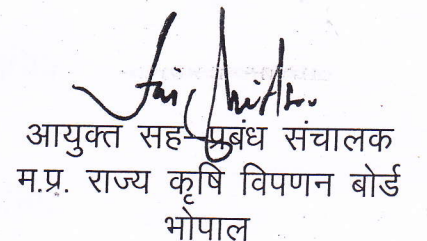 आयुक्त सह-प्रबंध संचालक
म.प्र. राज्य कृषि विपणन बोर्ड
भोपाल